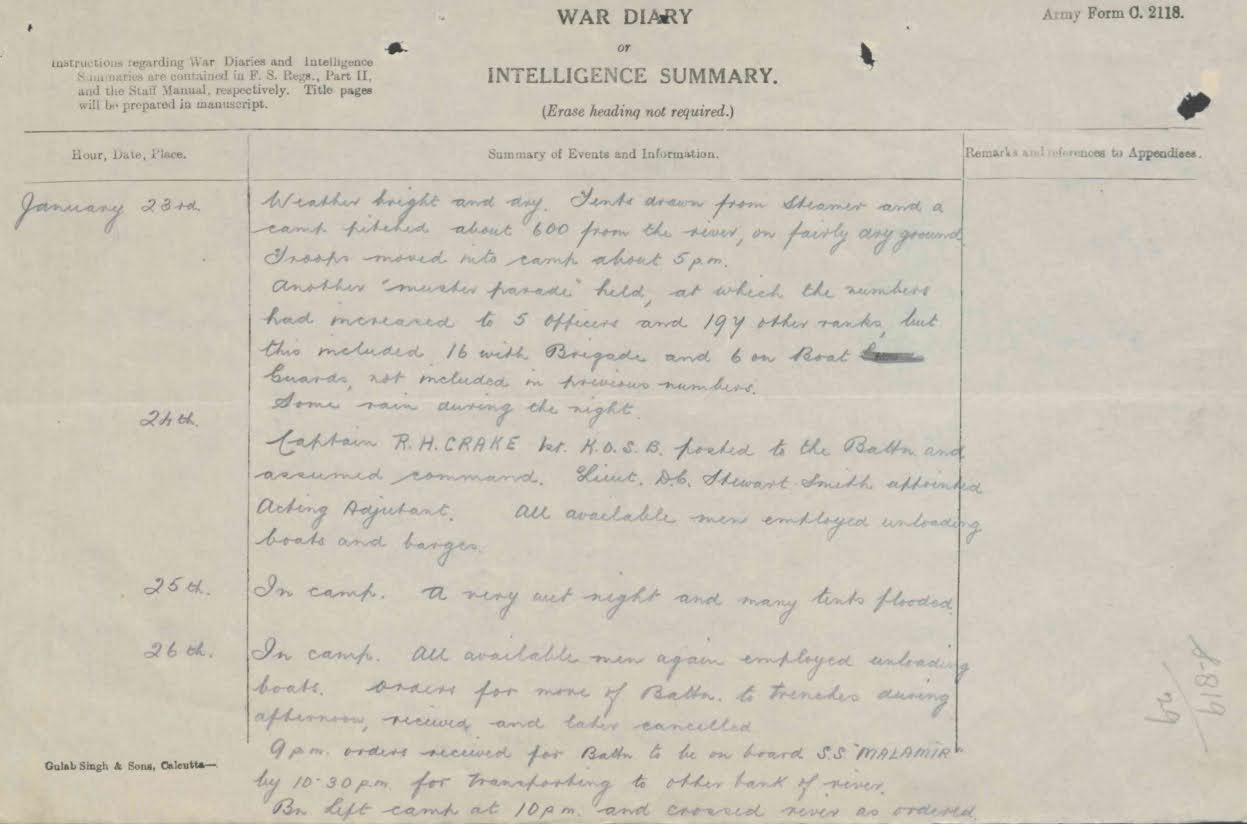 WAR DIARY
or
INTELLIGENCE SUMMARY.
(Erase heading not required.)
Army Form C. 2118.
Instructions regarding War Diaries and Intelligence
Summaries are contained in F. S. Regs., Part II,
and the Staff Manual, respectively. Title pages
will be prepared in manuscript.
Hour, Date, Place.
Summary of Events and Information.
Remarks and references to Appendices.
January 23rd.
Weather bright and dry. Tents drawn from Steamer and a
camp pitched about 600 from the river, on fairly dry ground.
Troops moved into camp about 5 p.m.
Another "muster parade" held, at which the numbers
had increased to 5 Officers and 197 other ranks, but
this included 16 with Brigade and 6 on Boat
Guards, not included in previous numbers.
Some rain during the night.
24th.
Captain R.H. CRAKE 1st. K.O.S.B. posted to the Battn and
assumed command. Lieut. D.C. Stewart-Smith appointed
Acting Adjutant. All available men employed unloading
boats and barges.
25th.
In camp. A very wet night and many tents flooded.
26th.
In camp. All available men again employed unloading
boats. Orders for move of Battn. to trenches during
afternoon, received and later cancelled
9 p.m. orders received for Battn to be on board S.S "MALAMIR"
by 10-30 p.m. for transporting to other bank of river.
Bn left camp at 10 p.m. and crossed river as ordered.
Gulab Singh & Sons, Calcutta—